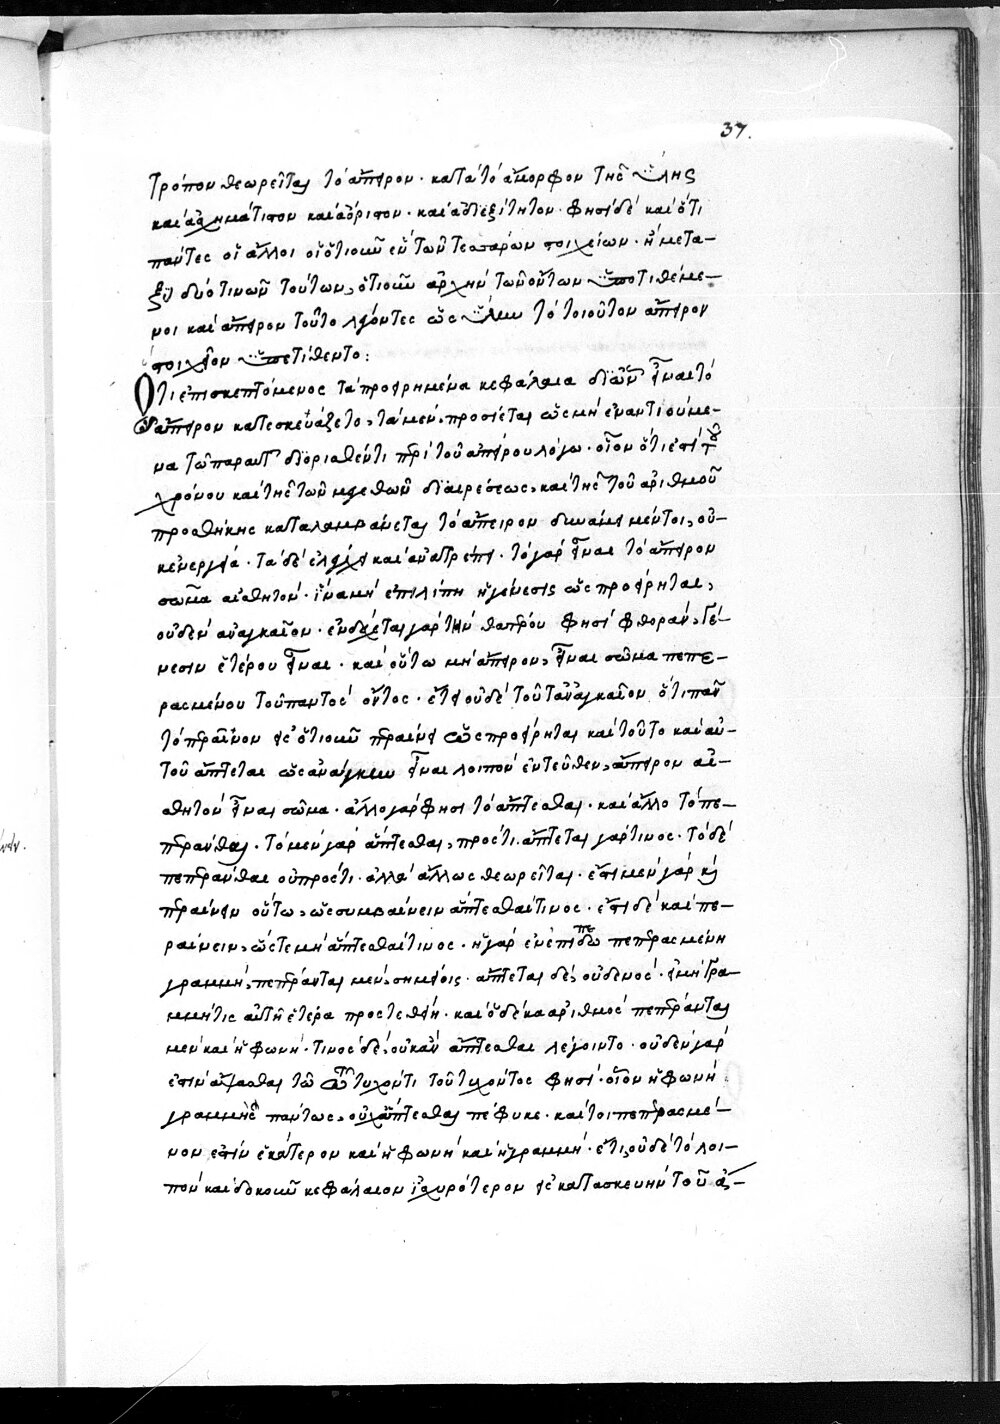 37.
τρόπον θεωρεῖται τὸ ἄπειρον · κατὰ τὸ ἄμορφον τῆς ὕλης
καὶ ἀσχημάτιστον καὶ ἀόριστον · καὶ ἀδιεξίτητον · φησὶ δὲ καὶ ὅτι
πάντες οἱ ἄλλοι οἱ ὁτιοῦν ἐν τῶν τεσσάρων στοιχείων · ἢ μετα-
ξὺ δυό τινων τούτων, ὁτιοῦν ἀρχὴν τῶν ὄντων ὑποτιθέμε-
νοι καὶ ἄπειρον τοῦτο λέγοντες ὡς ὕλην τὸ τοιοῦτον ἄπειρον
στοιχεῖον ὑπετίθεντο :
Ὅτι ἐπισκεπτόμενος τὰ προειρημένα κεφάλαια δι' ὧν εἶναι τὸ
ἄπειρον κατεσκευάζετο, τὰ μὲν, προσίεται ὡς μὴ ἐναντιούμε-
να τῷ παρ' αὐτοῦ διορισθέντι περὶ τοῦ ἀπείρου λόγω · οἷον ὅτι ἐπὶ τοῦ
χρόνου καὶ τῆς τῶν μεγεθῶν διαιρέσεως, καὶ τῆς τοῦ ἀριθμοῦ
προσθήκης καταλαμβάνεται τὸ ἄπειρον δυνάμει μέντοι, οὐ-
κ ἐνεργεία · τὰ δὲ ἐλέγχει καὶ ἀνατρέπει · τὸ γὰρ εἶναι τὸ ἄπειρον
σῶμα αἰσθητόν · ἵνα μὴ ἐπιλίπη ἡ γένεσις ὡς προείρηται,
οὐδὲν ἀναγκαῖον · ἐνδέχεται γὰρ τὴν θατέρου φησὶ φθορὰν, γέ-
νεσιν ἑτέρου εἶναι · καὶ οὕτω μὴ ἄπειρον, εἶναι σῶμα πεπε-
ρασμένου τοῦ παντὸς ὄντος · ἔτι οὐδὲ τοῦτ' ἀναγκαῖον ὅτι πᾶν
τὸ περαῖνον εἰς ὁτιοῦν περαίνει ὡς προείρηται καὶ τοῦτο καὶ αὐ-
τοῦ ἅπτεται ὡς ἀνάγκην εἶναι λοιπὸν ἐντεῦθεν, ἄπειρον αἰ-
σθητὸν εἶναι σῶμα · ἄλλο γάρ φησι τὸ ἅπτεσθαι · καὶ ἄλλο τὸ πε-
περάνθαι · τὸ μὲν γὰρ ἅπτεσθαι, πρός τι ἅπτεται γάρ τινος · τὸ δὲ
πεπεράνθαι οὐ πρός τι · ἀλλ' ἄλλως θεωρεῖται · ἔστι μὲν γὰρ καὶ
περαίνειν οὕτω, ὡς συμβαίνειν ἅπτεσθαί τινος · ἔστι δὲ καὶ πε-
ραίνειν, ὥστε μὴ ἅπτεσθαί τινος · ἡ γὰρ ἐν ἐπιπέδω πεπερασμένη
γραμμή, πεπέρανται μὲν, σημείοις · ἅπτεται δὲ, οὐδενός · εἰ μὴ γρα-
μμή τις αὐτῆ ἑτέρα προστεθείη · καὶ ὁ δέκα ἀριθμὸς πεπέρανται
μὲν καὶ ἡ φωνή · τινὸς δὲ, οὐκ ἂν ἅπτεσθαι λέγοιντο · οὐδὲν γάρ
ἐστιν ἅψασθαι τῶ τυχόντι τοῦ τυχόντος φησὶ · οἷον ἡ φωνὴ
γραμμῆς πάντως, οὐχ ἅπτεσθαι πέφυκε · καίτοι πεπερασμέ-
νον ἐστὶν ἑκάτερον καὶ ἡ φωνὴ καὶ ἡ γραμμή · ἔτι, οὐδὲ τὸ λοι-
πὸν καὶ δοκοῦν κεφάλαιον ἰσχυρότερον εἰς κατασκευὴν τοῦ ἀ-